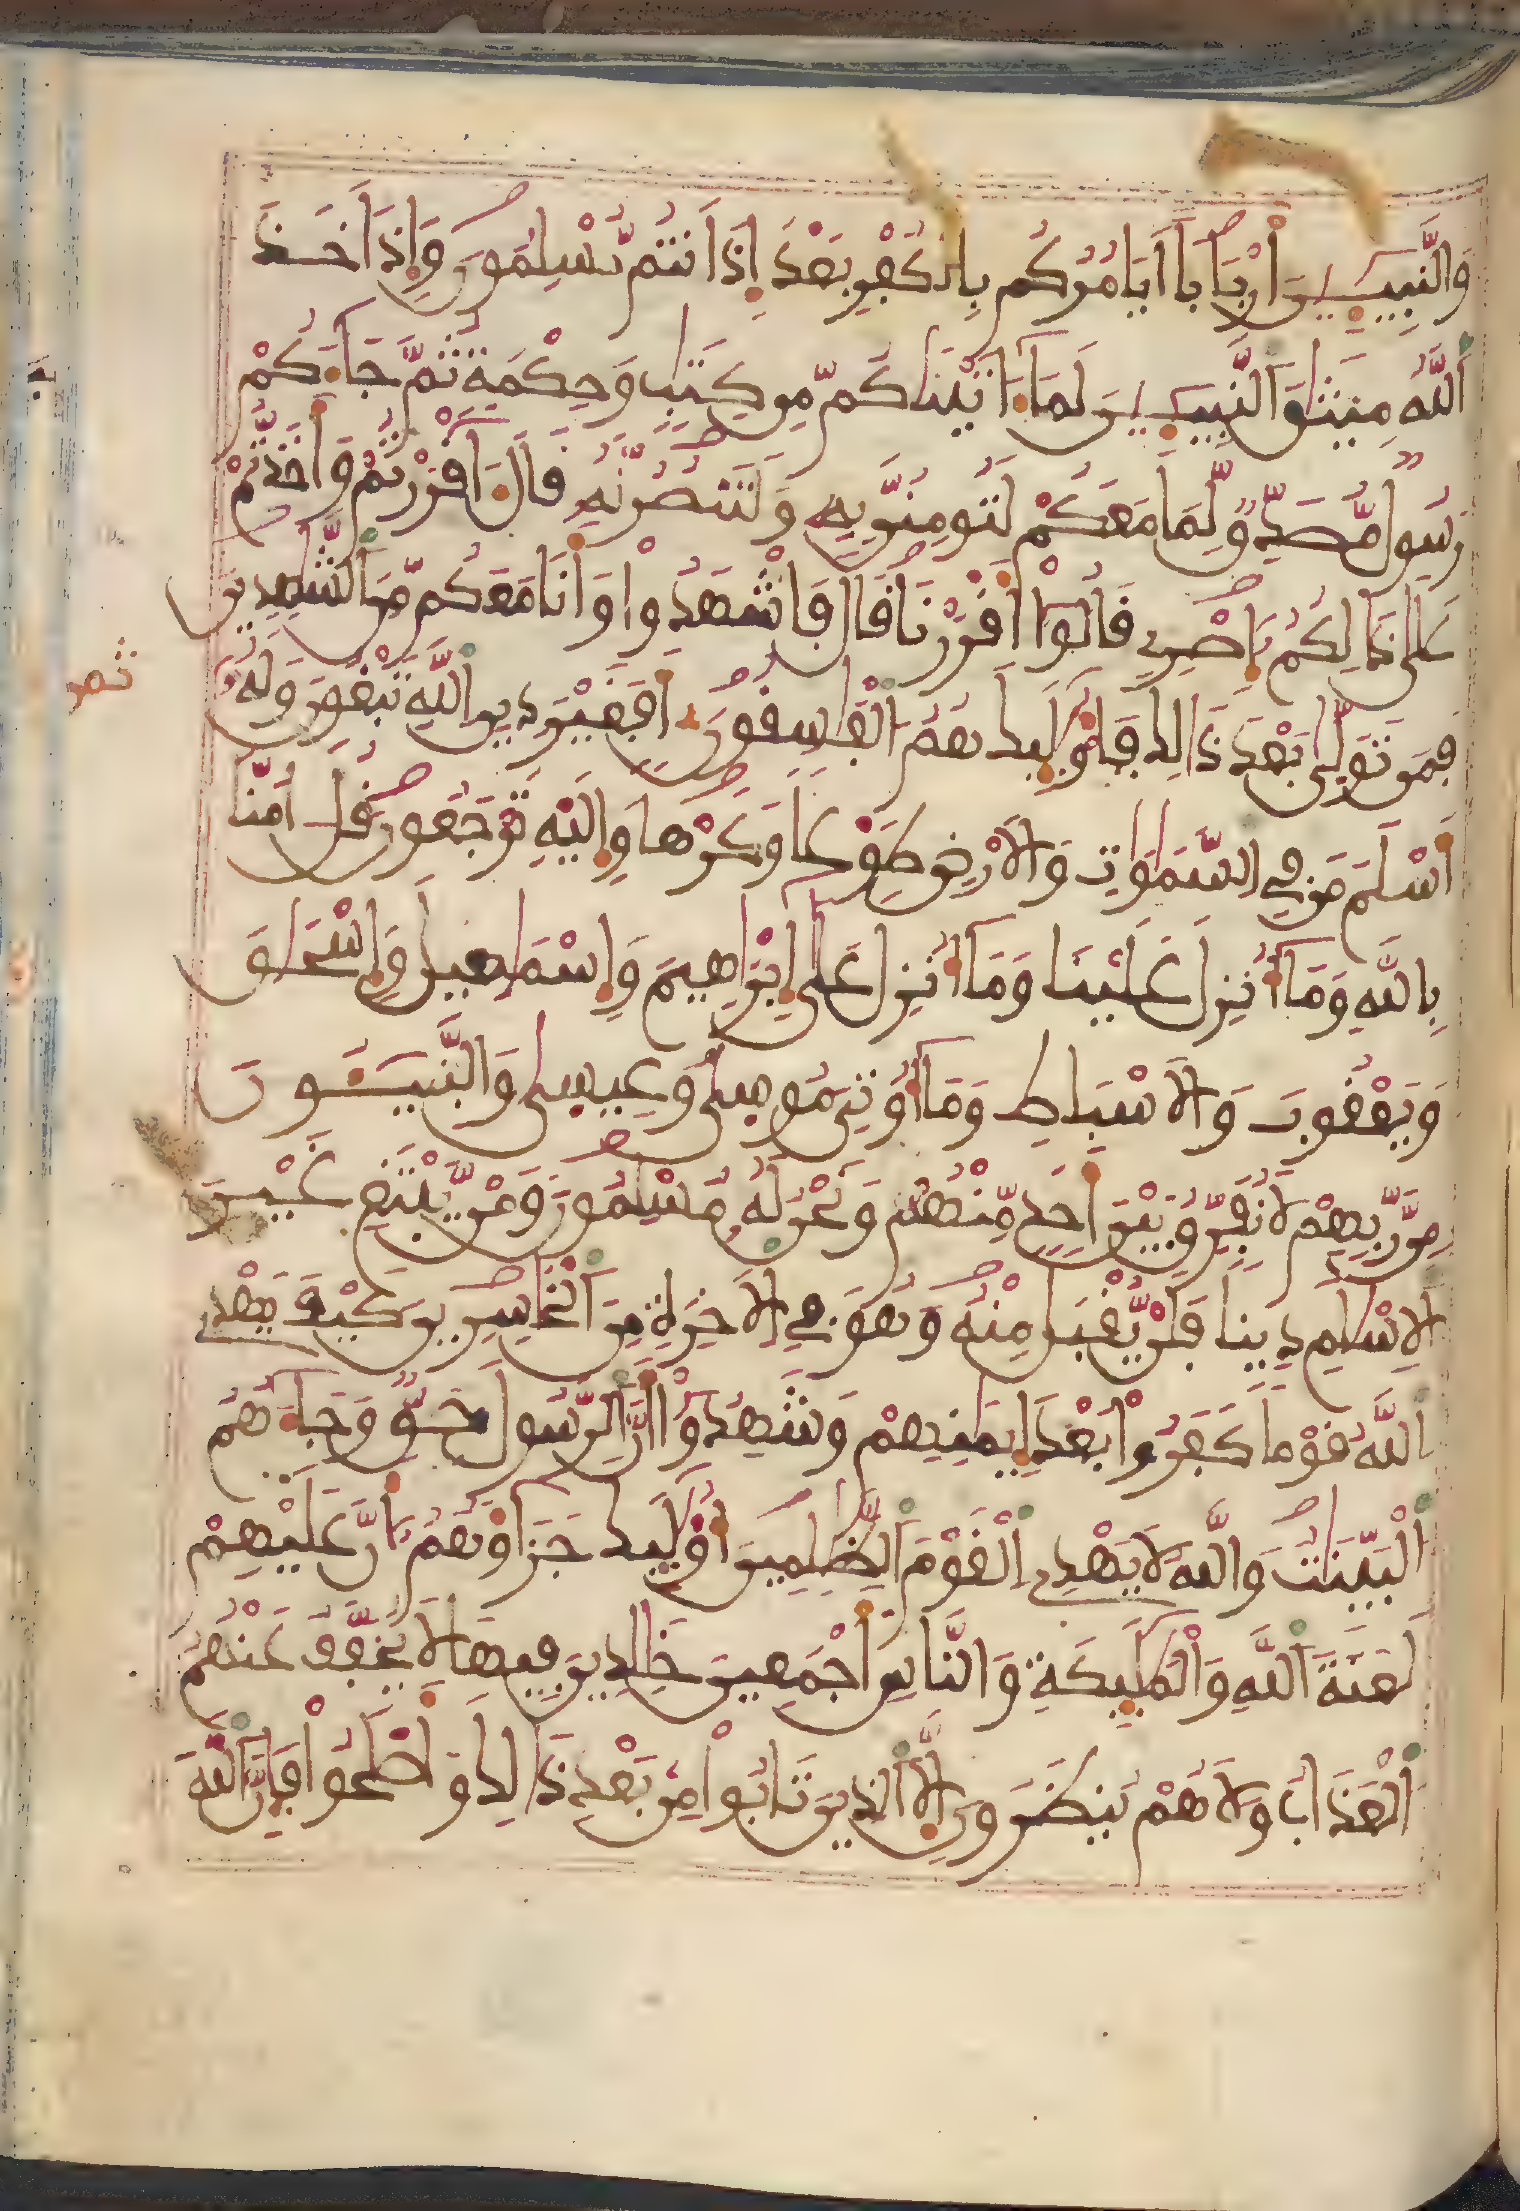 وَالنَّبِيـِٕينَ أَرْبَابًا أَيَامُرُكُم بِالْكُفْرِ بَعْدَ إِذَ انتُم مُّسْلِمُونَ وَإِذَ اخَذَ
اَللَّهُ مِيثَٰقَ اَلنَّبِيـِٕينَ لَمَآ ءَاتَيْنَٰكُم مِّن كِتَٰبٖ وَحِكْمَةٖ ثُمَّ جَآءَكُمْ
رَسُولٞ مُّصَدِّقٞ لِّمَا مَعَكُمْ لَتُومِنُنَّ بِهِۦ وَلَتَنصُرُنَّهُۥ قَالَ ءَآقْرَرْتُمْ وَأَخَذتُّمْ
عَلَىٰ ذَٰلِكُمُۥٓ إِصْرِے قَالُوٓاْ أَقْرَرْنَا قَالَ فَاشْهَدُواْ وَأَنَا مَعَكُم مِّنَ اَلشَّٰهِدِينَ
فَمَن تَوَلَّىٰ بَعْدَ ذَٰلِكَ فَأُوْلَٰٓئِكَ هُمُ اُلْفَٰسِقُونَ أَفَغَيْرَ دِينِ اِللَّهِ تَبْغُونَ وَلَهُۥٓ
أَسْلَمَ مَن فِے اِلسَّمَٰوَٰتِ وَالَارْضِ طَوْعاً وَكَرْهاً وَإِلَيْهِ تُرْجَعُونَ قُلَ اٰمَنَّا
بِاللَّهِ وَمَآ أُنزِلَ عَلَيْنَا وَمَآ أُنزِلَ عَلَىٰٓ إِبْرَٰهِيمَ وَإِسْمَٰعِيلَ وَإِسْحَٰقَ
وَيَعْقُوبَ وَالَاسْبَاطِ وَمَآ أُوتِيَ مُوسَىٰ وَعِيسَىٰ وَالنَّبِيـُٔونَ
مِن رَّبِّهِمْ لَا نُفَرِّقُ بَيْنَ أَحَدٖ مِّنْهُمْ وَنَحْنُ لَهُۥ مُسْلِمُونَ وَمَنْ يَّبْتَغِ غَيْرَ
اَلِاسْلَٰمِ دِيناً فَلَنْ يُّقْبَلَ مِنْهُ وَهُوَ فِے اِلَاخِرَةِ مِنَ اَلْخَٰسِرِينَ كَيْفَ يَهْدِے
اِللَّهُ قَوْماً كَفَرُواْ بَعْدَ إِيمَٰنِهِمْ وَشَهِدُوٓاْ أَنَّ اَلرَّسُولَ حَقّٞ وَجَآءَهُمُ
اُلْبَيِّنَٰتُ وَاللَّهُ لَا يَهْدِے اِلْقَوْمَ اَلظَّٰلِمِينَ أُوْلَٰٓئِكَ جَزَآؤُهُمُۥٓ أَنَّ عَلَيْهِمْ
لَعْنَةَ اَللَّهِ وَالْمَلَٰٓئِكَةِ وَالنَّاسِ أَجْمَعِينَ خَٰلِدِينَ فِيهَا لَا يُخَفَّفُ عَنْهُمُ
اُلْعَذَابُ وَلَا هُمْ يُنظَرُونَ إِلَّا اَلذِينَ تَابُواْ مِنۢ بَعْدِ ذَٰلِكَ وَأَصْلَحُواْ فَإِنَّ اَللَّهَ
ثمن